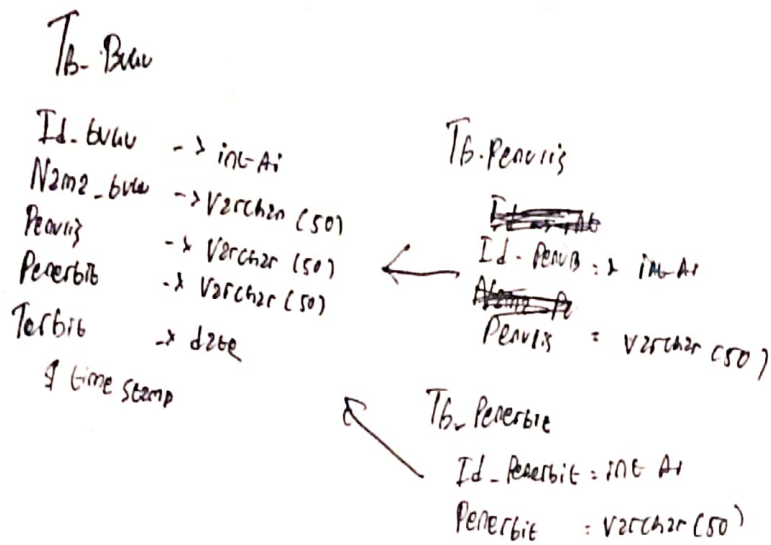 Tb-Buku
Id-buku -> int Ai
Nama_buku -> Varchar (50)
Penulis -> Varchar (50)
Penerbit -> Varchar (50)
Terbit -> date
& time stamp
Tb-Penulis
Id-Penulis : int-Ai
Penulis : Varchar (50)
Tb_Penerbit
Id_Penerbit : int Ai
Penerbit : Varchar (50)